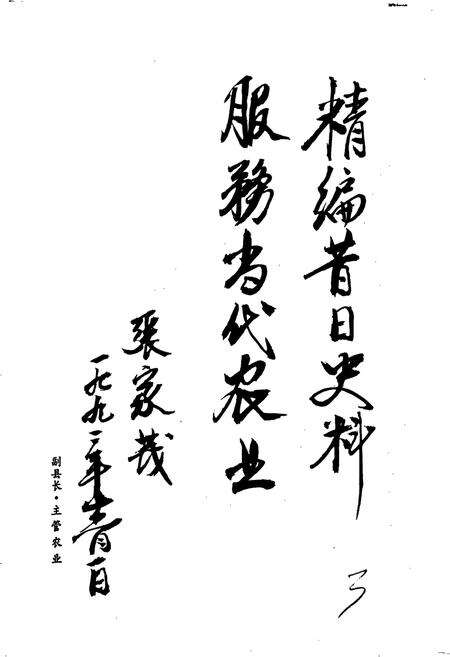 精编昔日史料
服務当代农业
张家茂
一九九二年
副县长·主管农业